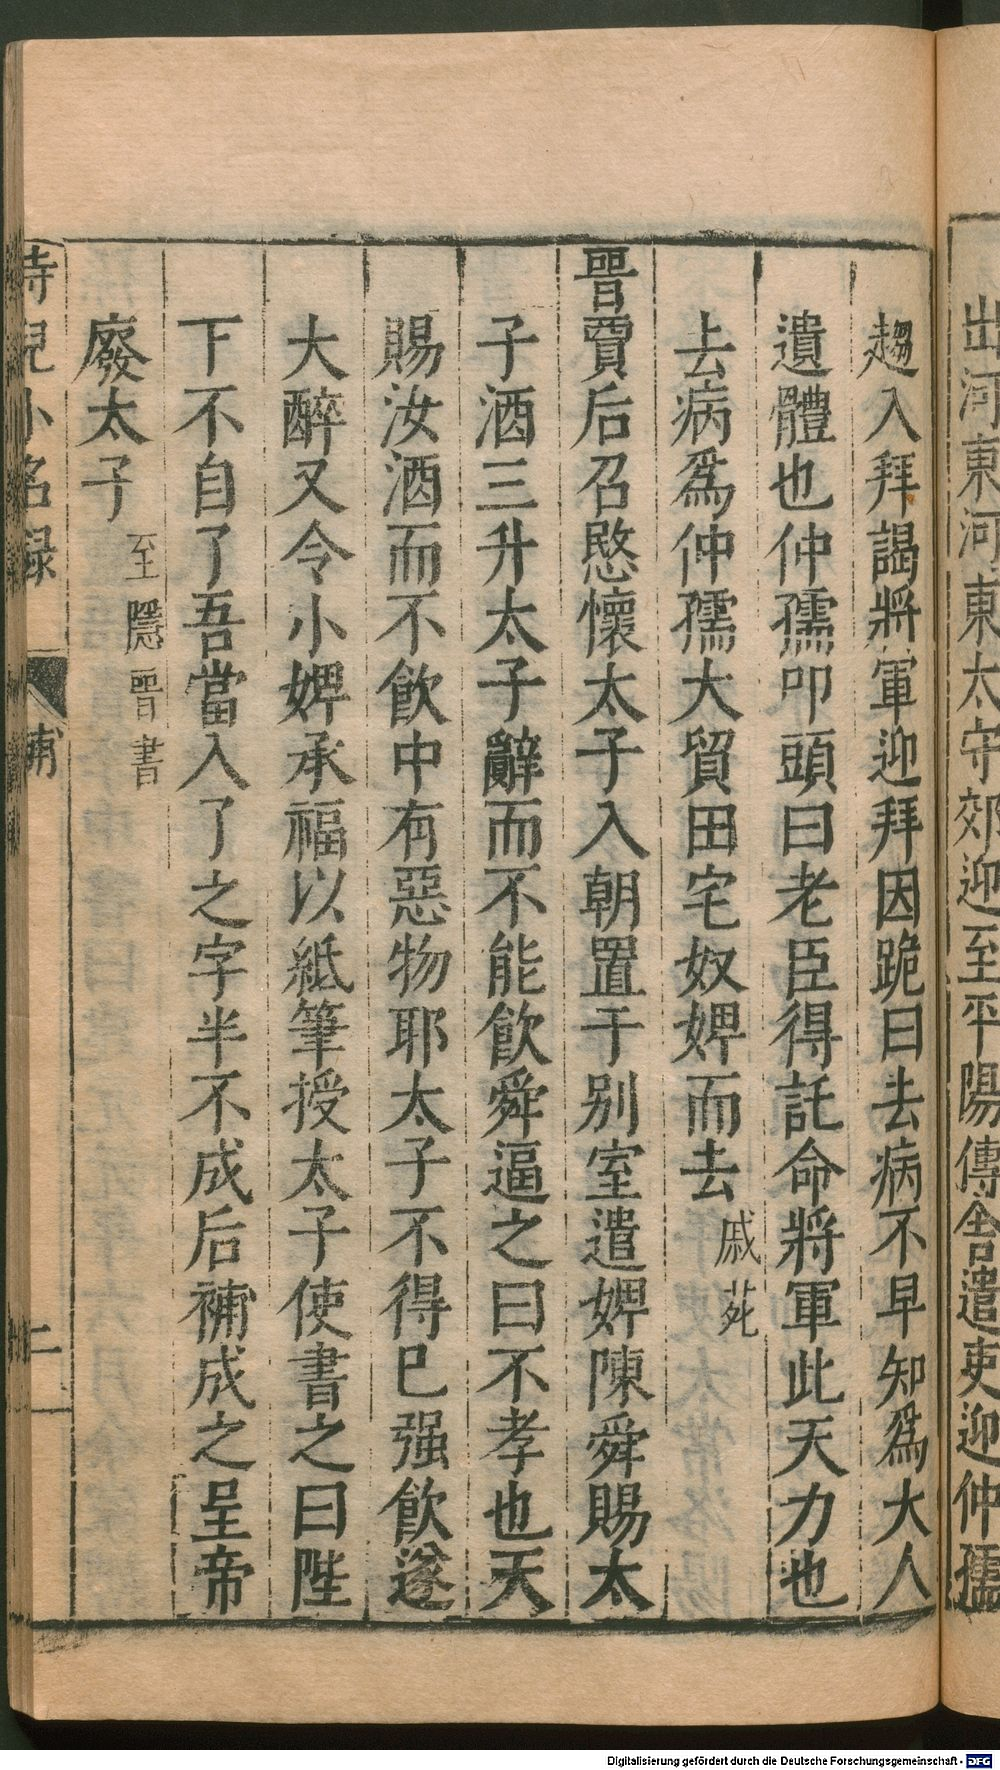 出河東河東太守郊迎至平陽傳舍遣吏迎仲孺
趨入拜謁將軍迎拜因跪曰去病不早知爲大人
遺體也仲孺叩頭曰老臣得託命將軍此天力也
去病爲仲孺大貿田宅奴婢而去 戚苑
晉賈后召愍懷太子入朝置于别室遣婢陳舜賜太
子酒三升太子辭而不能飲舜逼之曰不孝也天
賜汝酒而不飲中有惡物耶太子不得已强飲遂
大醉又令小婢承福以紙筆授太子使書之曰陛
下不自了吾當入了之字半不成后補成之呈帝
廢太子 至隱晉書
侍兒小名録 補 二
Digitalisierung gefördert durch die Deutsche Forschungsgemeinschaft - DFG